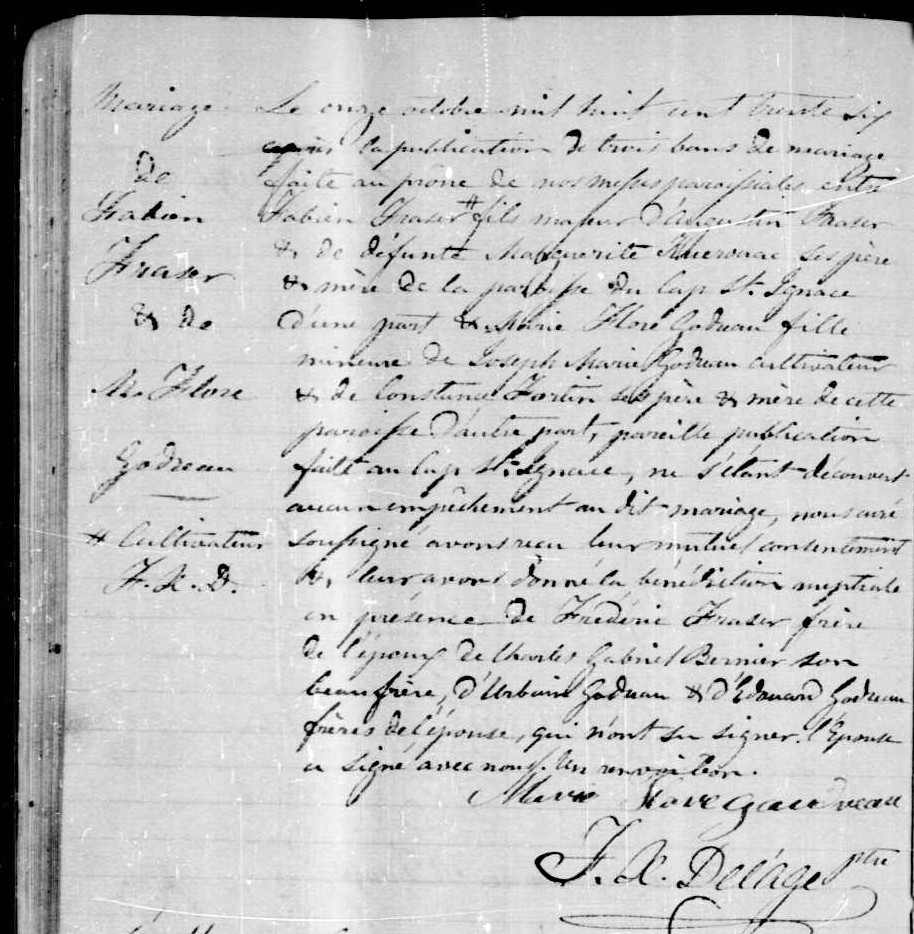 Mariage
de
Fabien
Fraser
& de
M. Flore
Godreau
# Cultivateur
F. X. D.
Le onze octobre mil huit cent trente six
après la publication de trois bans de mariage
faite au prône de nos messes paroissiales entre
Fabien Fraser # fils majeur d'Augustin Fraser
& de défunte Marguerite Kuerouac ses père
& mère de la paroisse du Cap St. Ignace
d'une part & Marie Flore Godreau fille
mineure de Joseph Marie Godreau cultivateur
& de Constance Fortin ses père & mère de cette
paroisse d'autre part, pareille publication
faite au Cap St. Ignace, ne s'étant découvert
aucun empêchement au dit mariage, nous curé
soussigné avons reçu leur mutuel consentement
& leur avons donné la bénédiction nuptiale
en présence de Frédéric Fraser frère
de l'époux de Charles Gabriel Bernier son
beau frère, d'Urbain Godreau & d'Edouard Godreau
frères de l'épouse, qui n'ont su signer. l'Epouse
a signé avec nous. Un renvoi bon.
Marie Flore Gaudreau
F. X. Delâge ptre